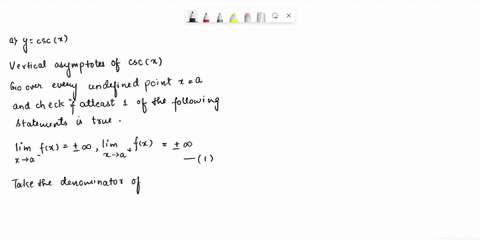 a) y = csc(x)
Vertical asymptotes of csc(x)
Go over every undefined point x = a
and check if atleast 1 of the following
statements is true.
lim x→a⁻ f(x) = ± ∞, lim x→a⁺ f(x) = ± ∞
—(1)
Take the denominator of